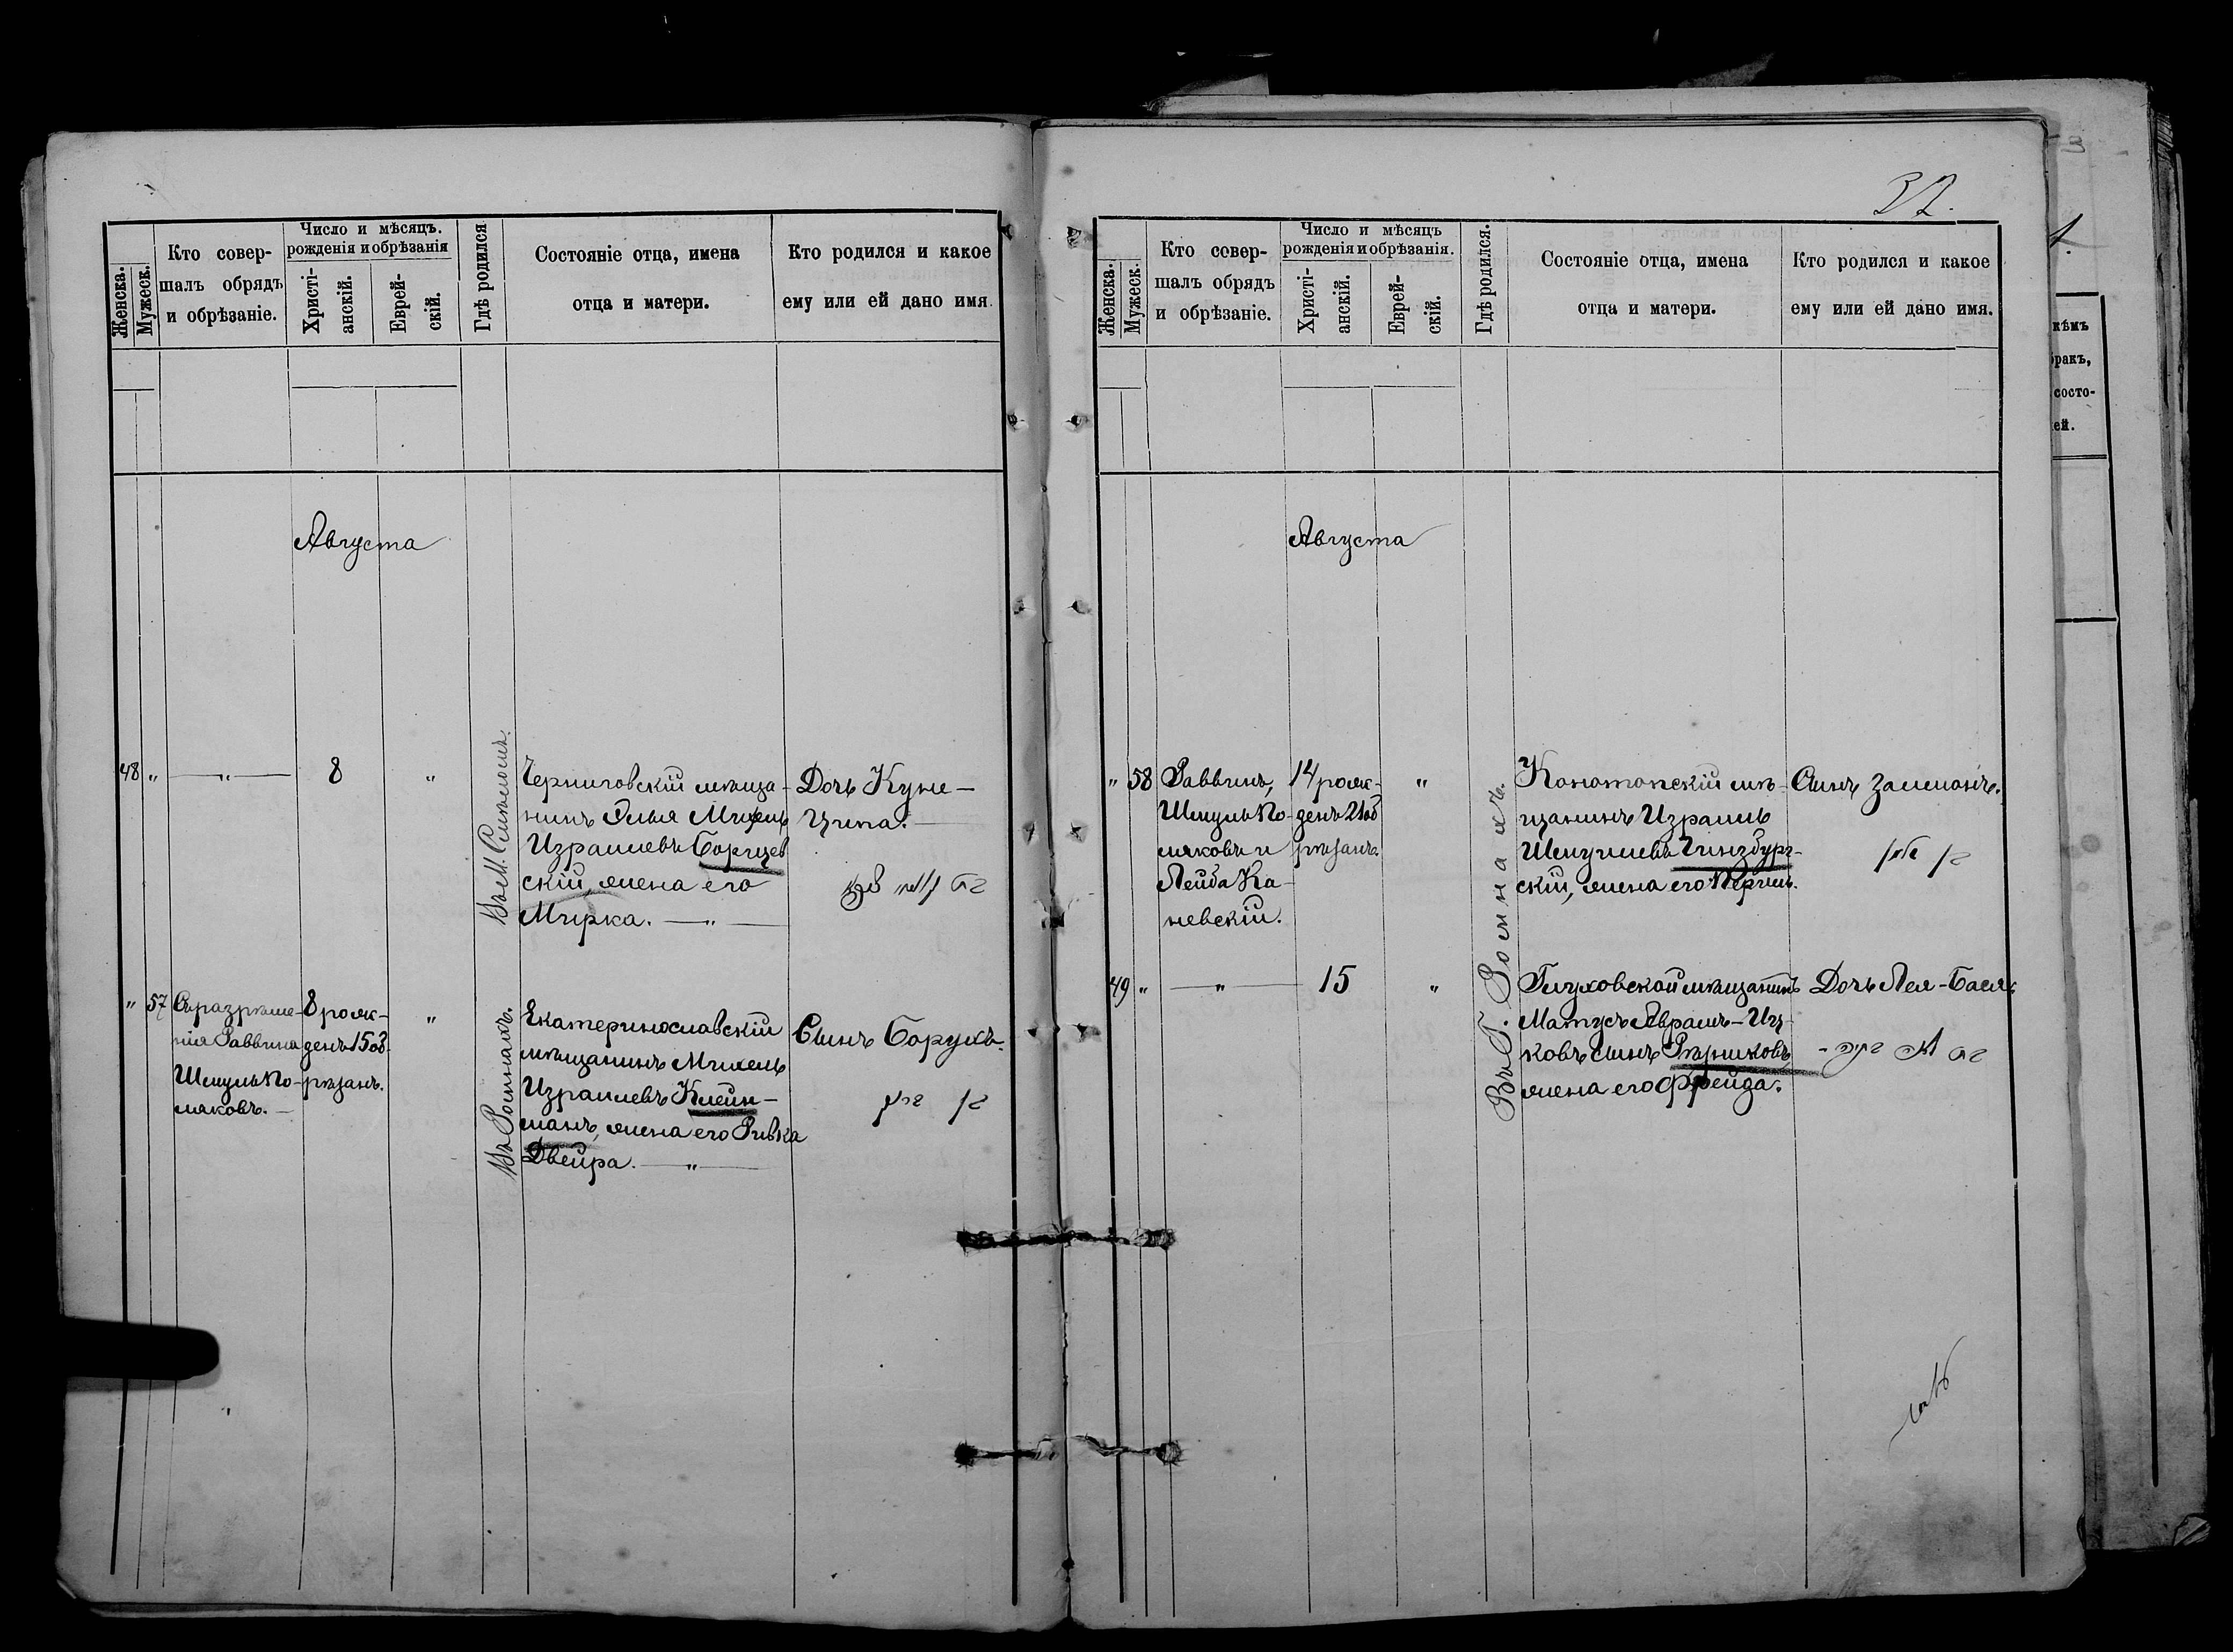 Женска.
Мужеск.
Кто совер-
шалъ обрядъ
и обрѣзаніе.
Число и мѣсяцъ.
рожденія и обрѣзанія
Христі-
анскій.
Еврей-
скій.
Гдѣ родился
Состояніе отца, имена
отца и матери.
Кто родился и какое
ему или ей дано имя.
Августа
48 " — " — 8 "
Черниговскій мѣща-
нинъ Михель
Израилевъ Борщев
скій, жена его
Мирка. — " —
Дочь Куне-
Ципа. —
" 57
Съ разрѣше-
нія Раввина
Шмуль По-
ляковъ. —
8 рож-
денъ 15 об-
рѣзанъ.
"
Въ Ромнахъ.
Екатеринославскій
мѣщанинъ Михель
Израилевъ Клейн-
манъ, жена его Ривка
Двейра. — " —
Сынъ Борухъ.
בן ברוך
32.
Женска.
Мужеск.
Кто совер-
шалъ обрядъ
и обрѣзаніе.
Число и мѣсяцъ
рожденія и обрѣзанія.
Христі-
анскій.
Еврей-
скій.
Гдѣ родился.
Состояніе отца, имена
отца и матери.
Кто родился и какое
ему или ей дано имя.
Августа
" 58
Раввинъ,
Шмуль По-
ляковъ и
Лейба Ка-
невскій.
14 рож-
денъ 21 об
рѣзанъ.
"
Въ Г. Ромнахъ.
Конотопскій мѣ-
щанинъ Израиль
Шмуилевъ Гинзбург-
скій, жена его Перль.
Сынъ Залманъ.
בן זלמן
49 " — " — 15 "
Глуховской мѣщанинъ
Матусъ Абрамъ-Иц-
ковъ сынъ Рѣзниковъ
жена его Фрейда.
Дочь Лея-Бася.
בת לאה באסיה
кѣмъ
бракъ,
состо-
ей.